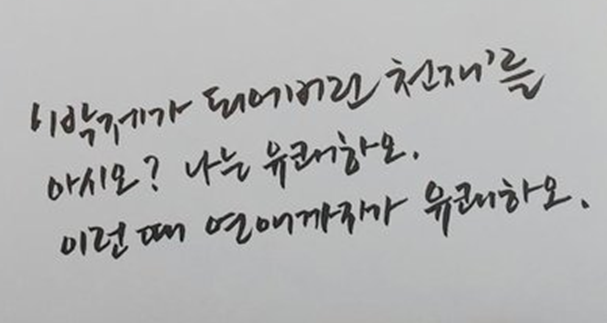 '박제가 되어버린 천재'를
아시오? 나는 유쾌하오.
이런때 연애까지가 유쾌하오.